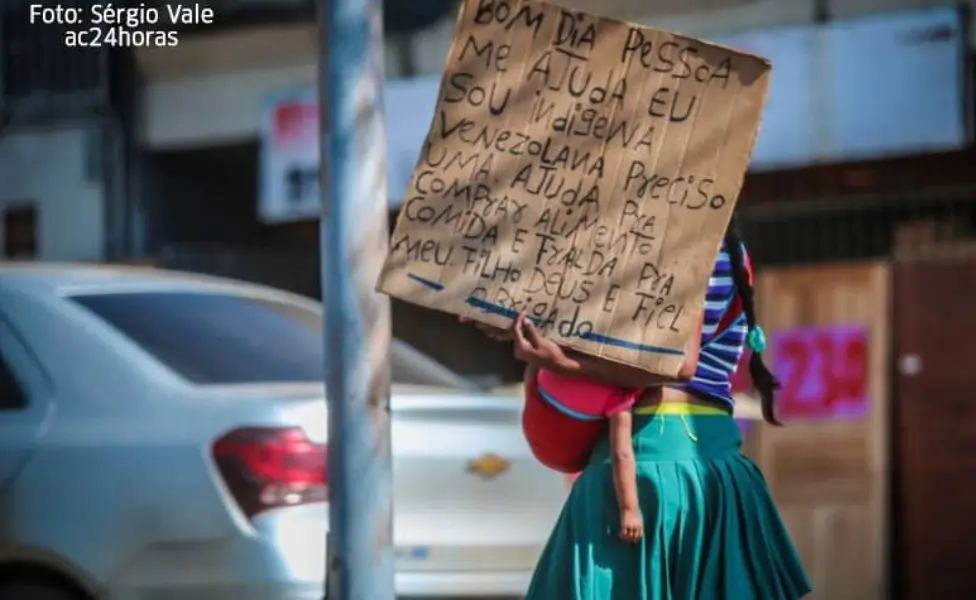 Foto: Sérgio Vale
ac24horas
BOM DIA PESSOA
ME AJUDA EU
SOU indigeNA
VENEZOLANA PRECISO
UMA AJUDA PRA
COMPRAR ALIMENTO
COMIDA E FRALDA PRA
MEU FILHO DEUS E FIEL
OBRIGADO